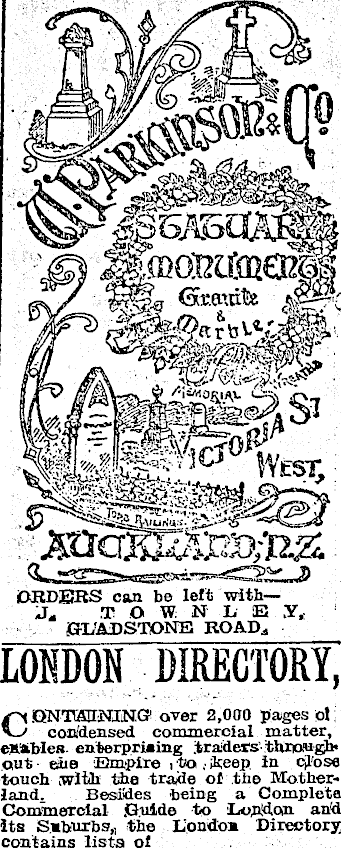 W. PARKINSON & Co
STATUARY
MONUMENTS
Granite
&
Marble
MEMORIAL
VICTORIA ST
WEST,
TOMB RAILINGS
AUCKLAND, N.Z.
ORDERS can be left with—
J. TOWNLEY,
GLADSTONE ROAD.
LONDON DIRECTORY,
CONTAINING over 2,000 pages of
condensed commercial matter,
enables enterprising traders through-
out the Empire to keep in close
touch with the trade of the Mother-
land. Besides being a Complete
Commercial Guide to London and
its Suburbs, the London Directory
contains lists of